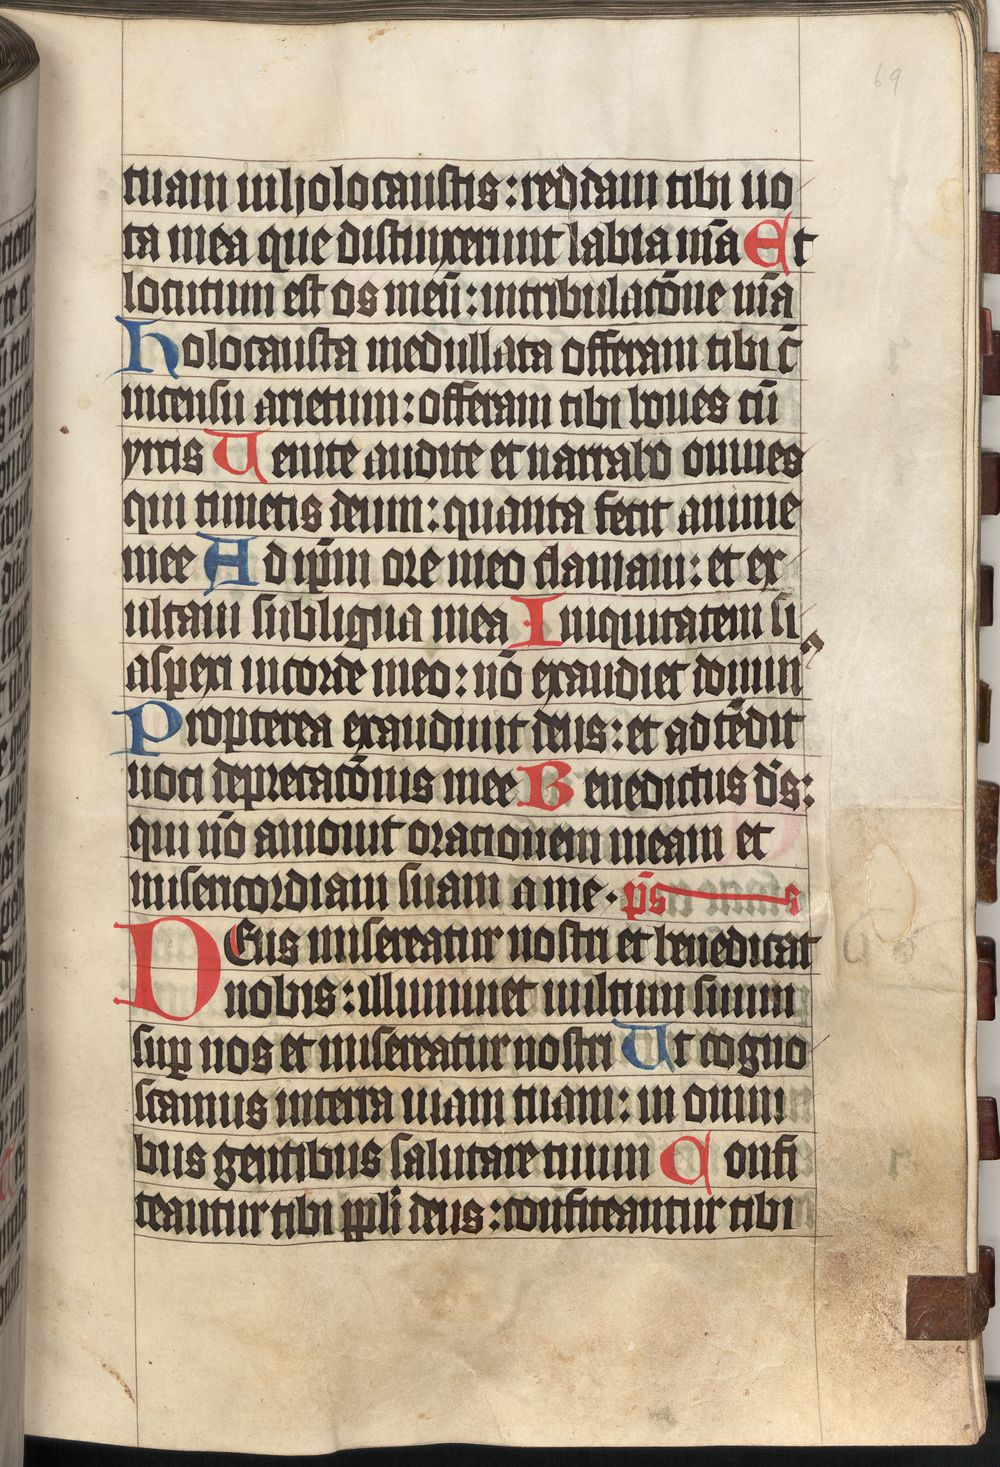 69
tuam in holocaustis: reddam tibi uo
ta mea que distinxerunt labia m̄a Et
locutum est os meū: in tribulacōne m̄a
Holocausta medullata offeram tibi c̄
incensu arietum: offeram tibi boues cū
yrcis Uenite audite et narrabo omnes
qui timetis deum: quanta fecit anime
mee Ad ip̄m ore meo clamaui: et ex
ultaui sub ligua mea Iniquitatem si
aspexi in corde meo: nō exaudiet domin᷒
Propterea exaudiuit deus: et adtēdit
uoci deprecacōnis mee Benedictus d̄s:
qui nō amouit orationem meam et
misericordiam suam a me. p̄s s
DEus misereatur nostri et benedicat
nobis: illuminet uultum suum
suꝑ nos et misereatur nostri Ut cogno
scamus in terra uiam tuam: in omni
bus gentibus salutare tuum Confi
teantur tibi ppl̄i deus: confiteantur tibi